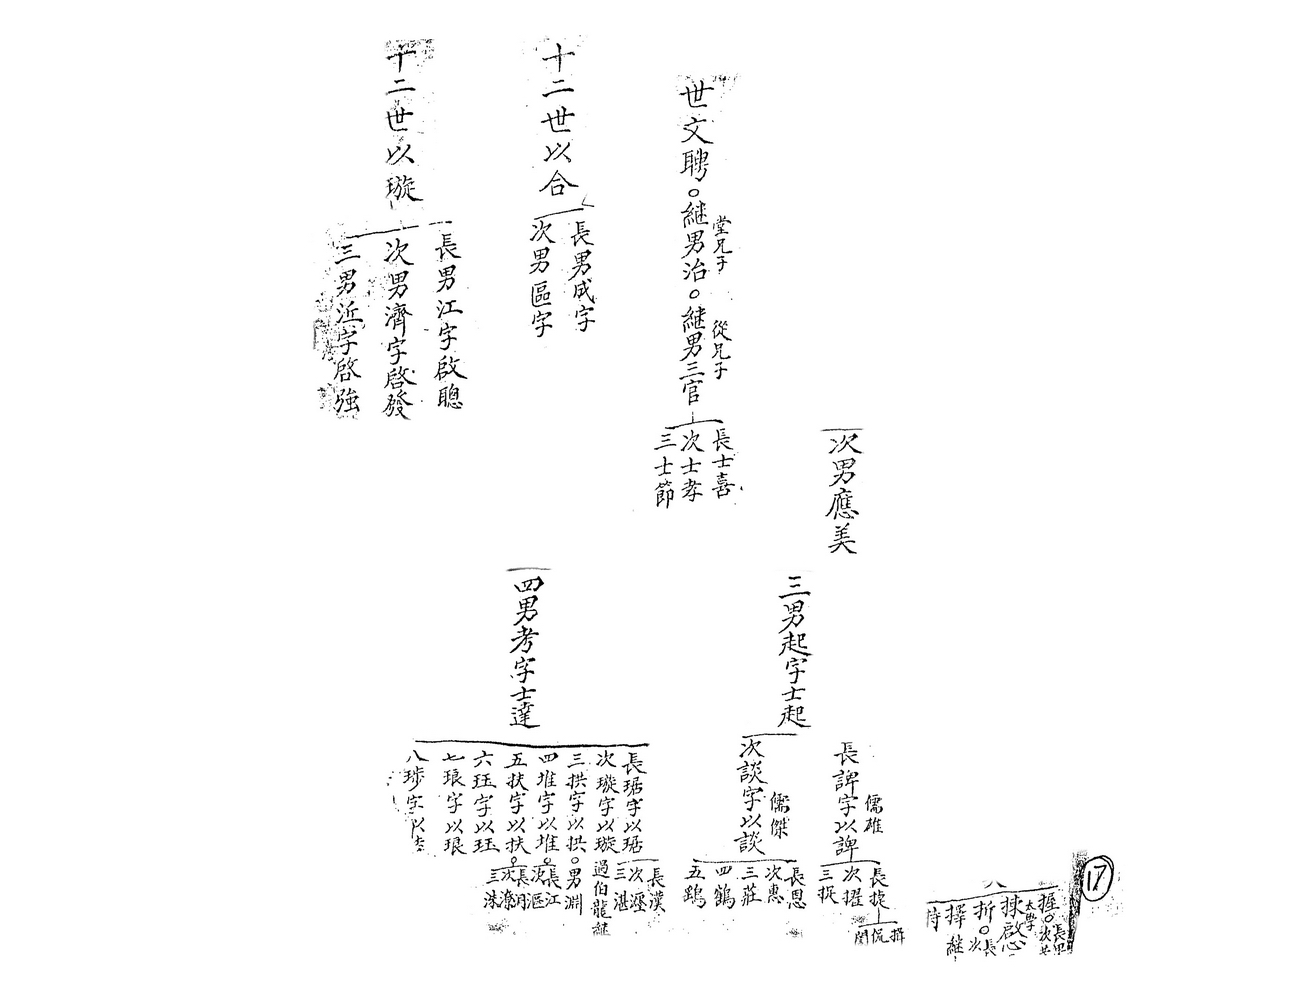 世文聘。継男治。継男三官
堂兄子
從兄子
長士喜
次士孝
三士節
十二世以合
長男成字
次男區字
十二世以璇
長男江字啟聰
次男濟字啓發
三男近字啓強
次男應美
三男起字士起
長諀字以諀
儒雄
長捷
次擢
三捉
次談字以談
儒傑
長恩
次惠
三莊
四鶴
五鵾
四男考字士達
長琚字以琚
長漢
次瀴
三湛
次璇字以璇
過伯龍
三拱字以拱。男淵
四堆字以堆。
長江
次漚
五扶字以扶。
三洙
六珏字以珏
七琅字以琅
八琗字以
太學
折。次長
擇継
侍
17